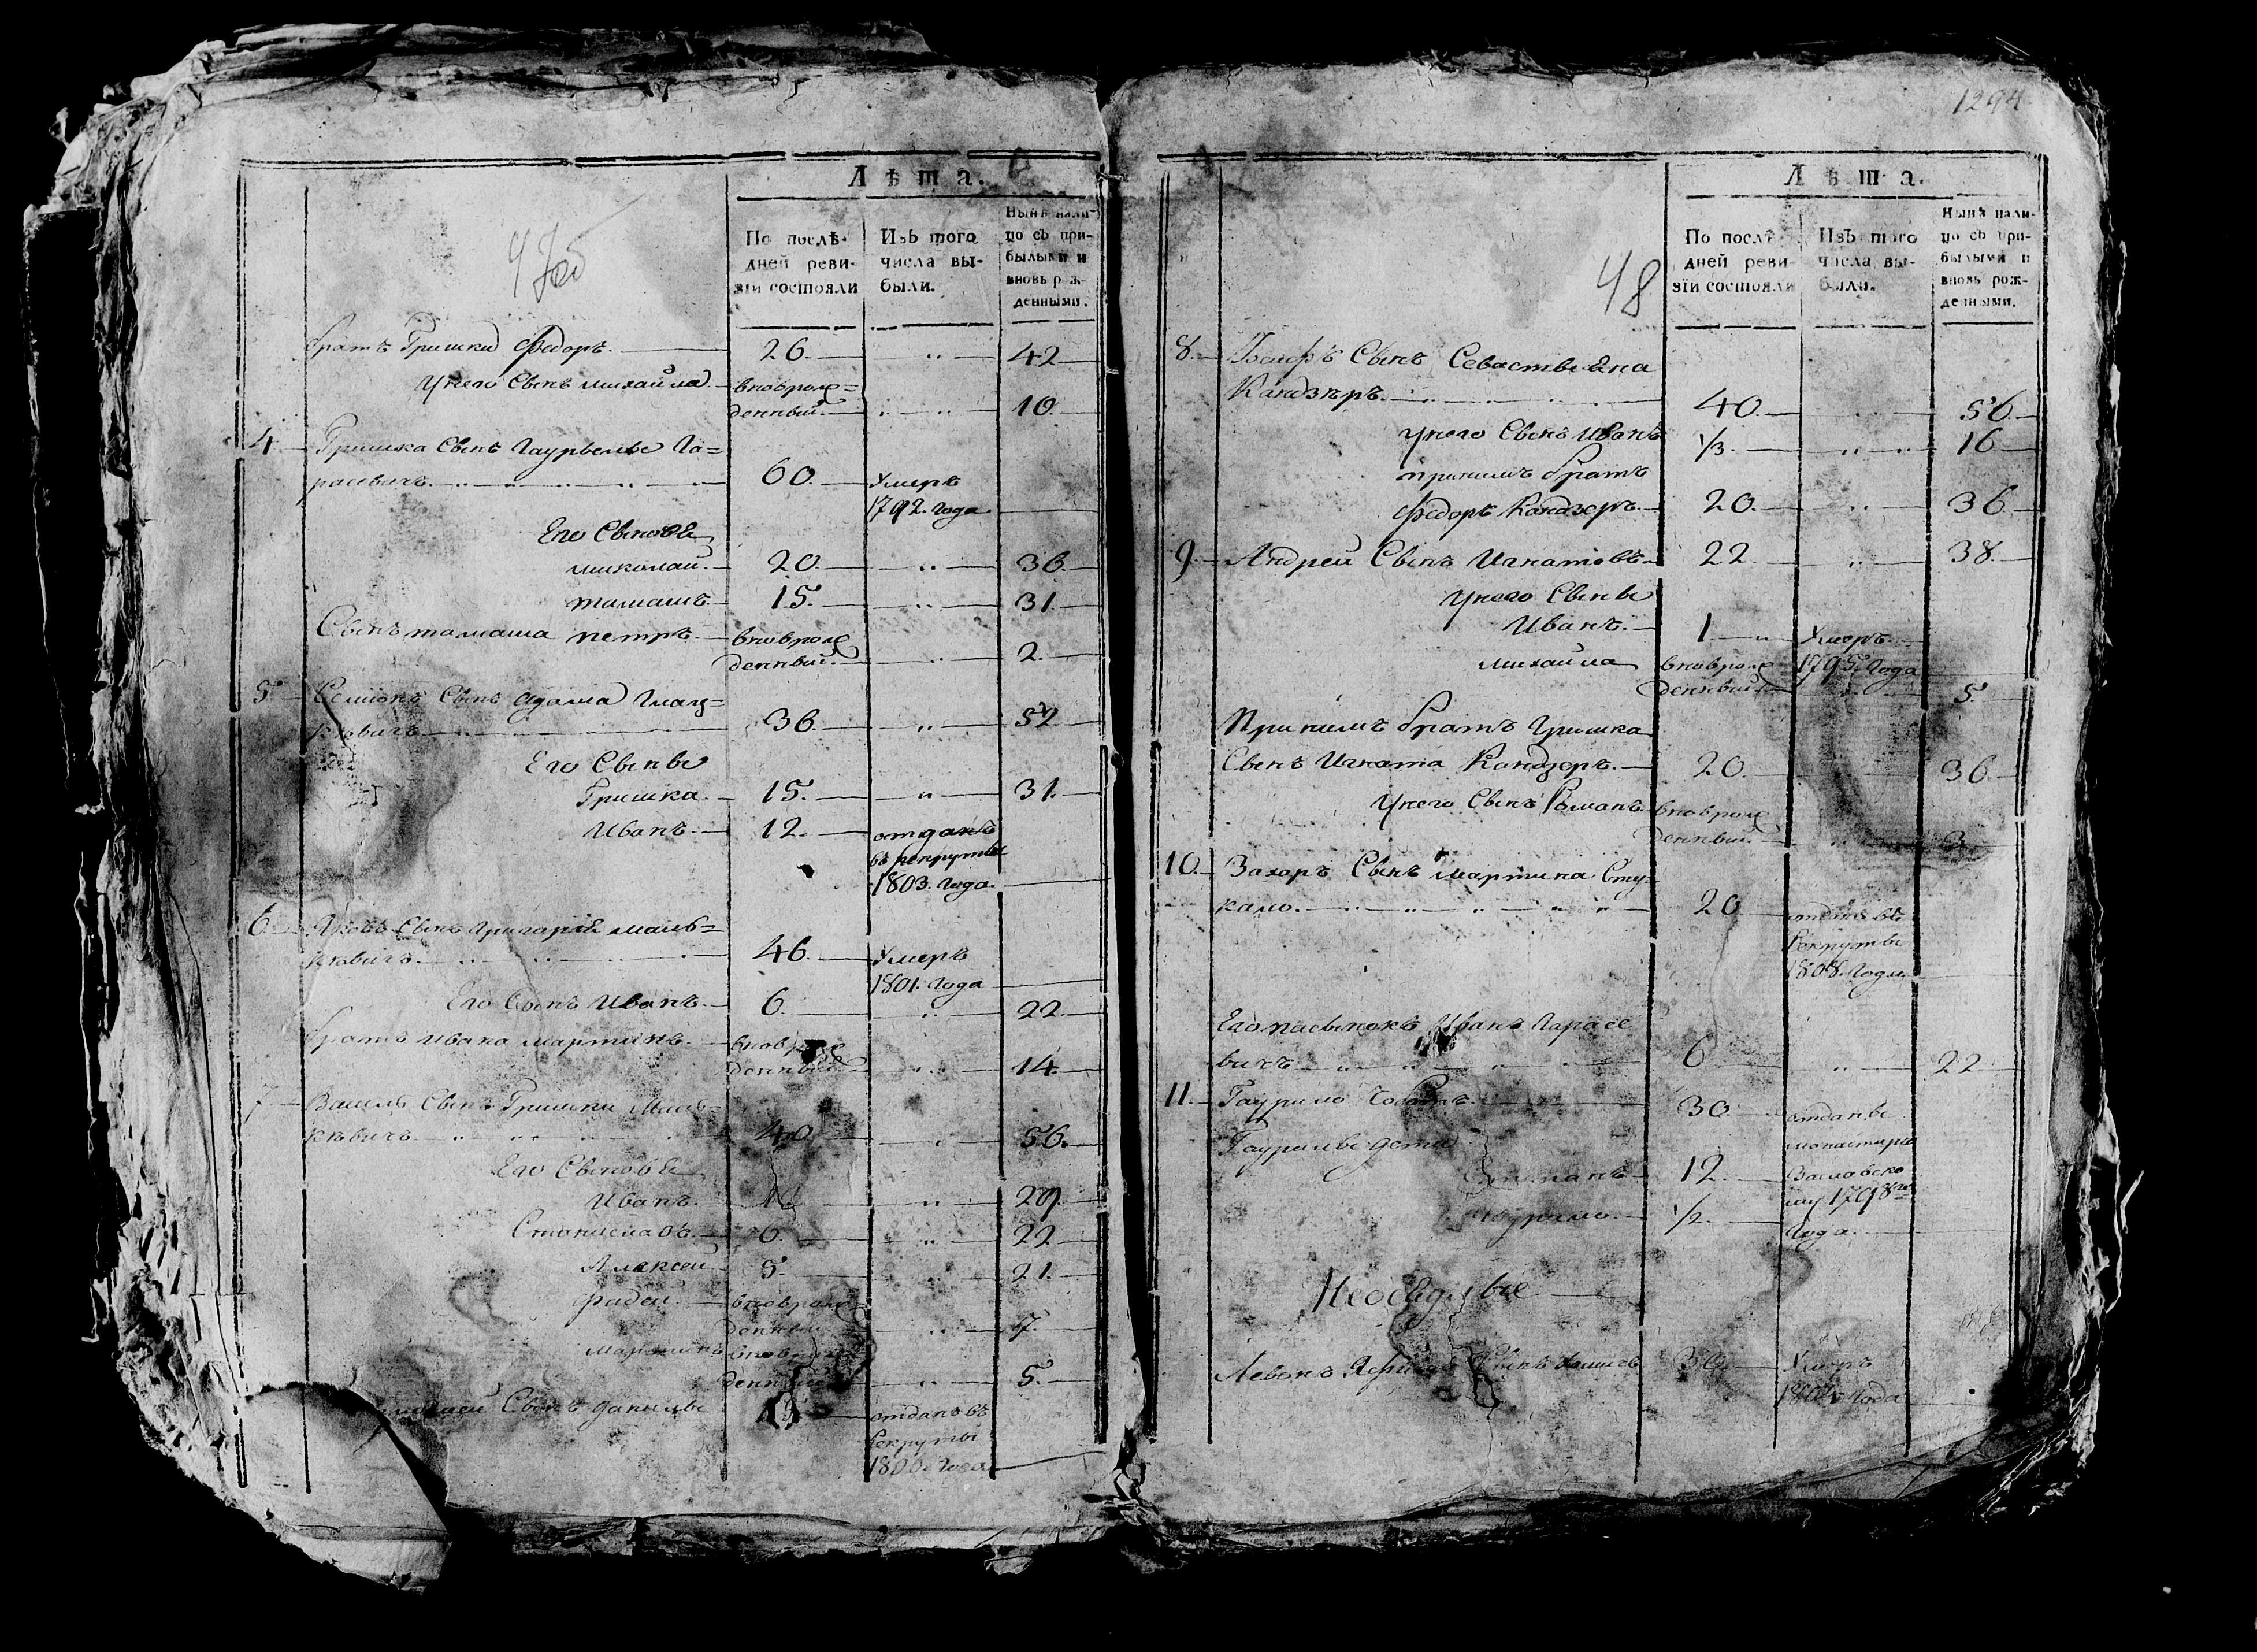 Лѣта.
По послѣ-
дней реви-
зіи состояли
Изъ того
числа вы-
были.
Нынѣ нали-
цо съ при-
былыми и
вновь рож-
денными.
братъ Гришки Федоръ. 26. 42
у него Сынъ михайла. вноврож=
денный. 10.
4 Гришка Сынъ Гаурыла Га=
расевичъ 60. Умеръ
1792. года
Его Сыновѣ
миколай. 20. 36.
томашъ. 15. 31.
Сынъ томаша петръ. вноврож
денный. 2.
5 Семіонъ Сынъ адама
36. 52
Его Сыны
Гришка. 15. 31.
Иванъ. 12. отданъ
въ рекруты
1803. года.
6 Яковъ Сынъ Григорія маль=
кѣвичъ 46. Умеръ
1801. года
Его Сынъ Иванъ. 6. 22.
братъ Ивана мартинъ. вноврож
денный 14.
7 Василь Сынъ Гришки Маль=
кѣвичъ 40. 56.
Его Сыновѣ
Иванъ. 29.
Станиславъ. 6. 22
Алексей. 5. 21.
фадей. вноврож
денный 7.
мартинъ вноврож
денный 5.
Сынъ данилы отданъ въ
рекруты
1294
48
Лѣта.
По послѣ-
дней реви-
зіи состояли
Изъ того
числа вы-
были.
Нынѣ нали-
цо съ при-
былыми и
вновь рож-
денными.
8. Сынъ Севастьяна
Кандзѣръ. 40. 56.
у него Сынъ Иванъ 1/3. 16
при нимъ братъ
Федоръ Кандзеръ. 20. 36
9. Андрей Сынъ Игнатовъ 22. 38.
у него Сыны
Иванъ. 1 Умеръ
михайла вноврож 1795 года
денный. 5.
При нимъ братъ Гришка
Сынъ Игната Кандзеръ. 20. 36.
у него Сынъ Романъ. вноврож
денный. 3
10. Захаръ Сынъ мартина Сту=
кало. 20 отданъ въ
Рекруты
1808. года
Его пасынокъ Иванъ Гарасе
вичъ 6 22
11. Гаурыло 30. отданы
Гаурылы дети монастырю
Степанъ 12. Заславско
Гаурыло. 1/2. му 1798го
года.
Неоседлые
Левонъ Сынъ 30. Умеръ
года